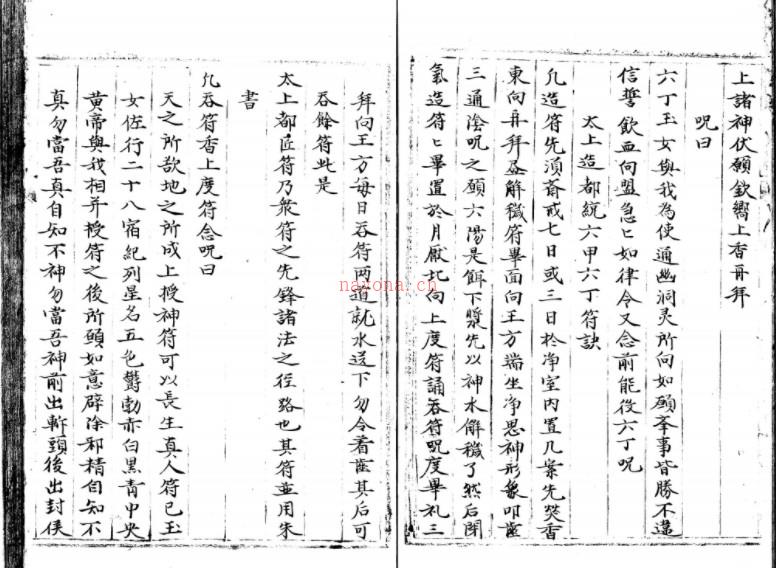 上諸神伏願歆嚮上香再拜
呪曰
六丁玉女與我為使通幽洞灵所向如願夲事皆勝不違
信誓飲血向盟急〻如律令又念前能役六丁呪
太上造都統六甲六丁符訣
凢造符先湏斎戒七日或三日於净室内置几案先焚香
東向再拜 解穢符畢面向王方端坐净思神形象叩齒
三通隂呪之願六陽是餌下漿先以神水解穢了然后閉
氣造符〻畢置於月厭北向上度符誦吞符呪度畢礼三
拜向王方每日吞符两道就水送下勿令着齒其后可
吞餘符此是
太上都匠符乃衆符之先鋒諸法之径路也其符並用朱
書
凢吞符香上度符念呪曰
天之所欲地之所成上授神符可以長生真人符已玉
女佐行二十八宿紀列星名五色欝勃赤白黒青中央
黄帝與我相并授符之後所願如意辟除邪精自知不
真勿當吾真自知不神勿當吾神前出斬頭後出封侯
nayona.cn